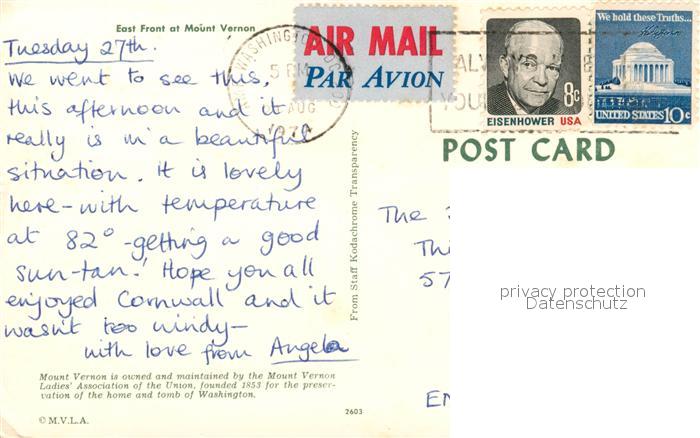 East Front at Mount Vernon
Tuesday 27th.
We went to see this,
this afternoon and it
really is in a beautiful
situation. It is lovely
here-with temperature
at 82° -getting a good
sun-tan! Hope you all
enjoyed Cornwall and it
wasn't too windy-
with love from Angela
Mount Vernon is owned and maintained by the Mount Vernon
Ladies' Association of the Union, founded 1853 for the preser-
vation of the home and tomb of Washington.
© M.V.L.A.
2603
From Staff Kodachrome Transparency
WASHINGTON
5 PM
AUG
AIR MAIL
PAR AVION
8c
EISENHOWER USA
We hold these Truths...
UNITED STATES 10c
POST CARD
The
Thi
57
EN
privacy protection
Datenschutz